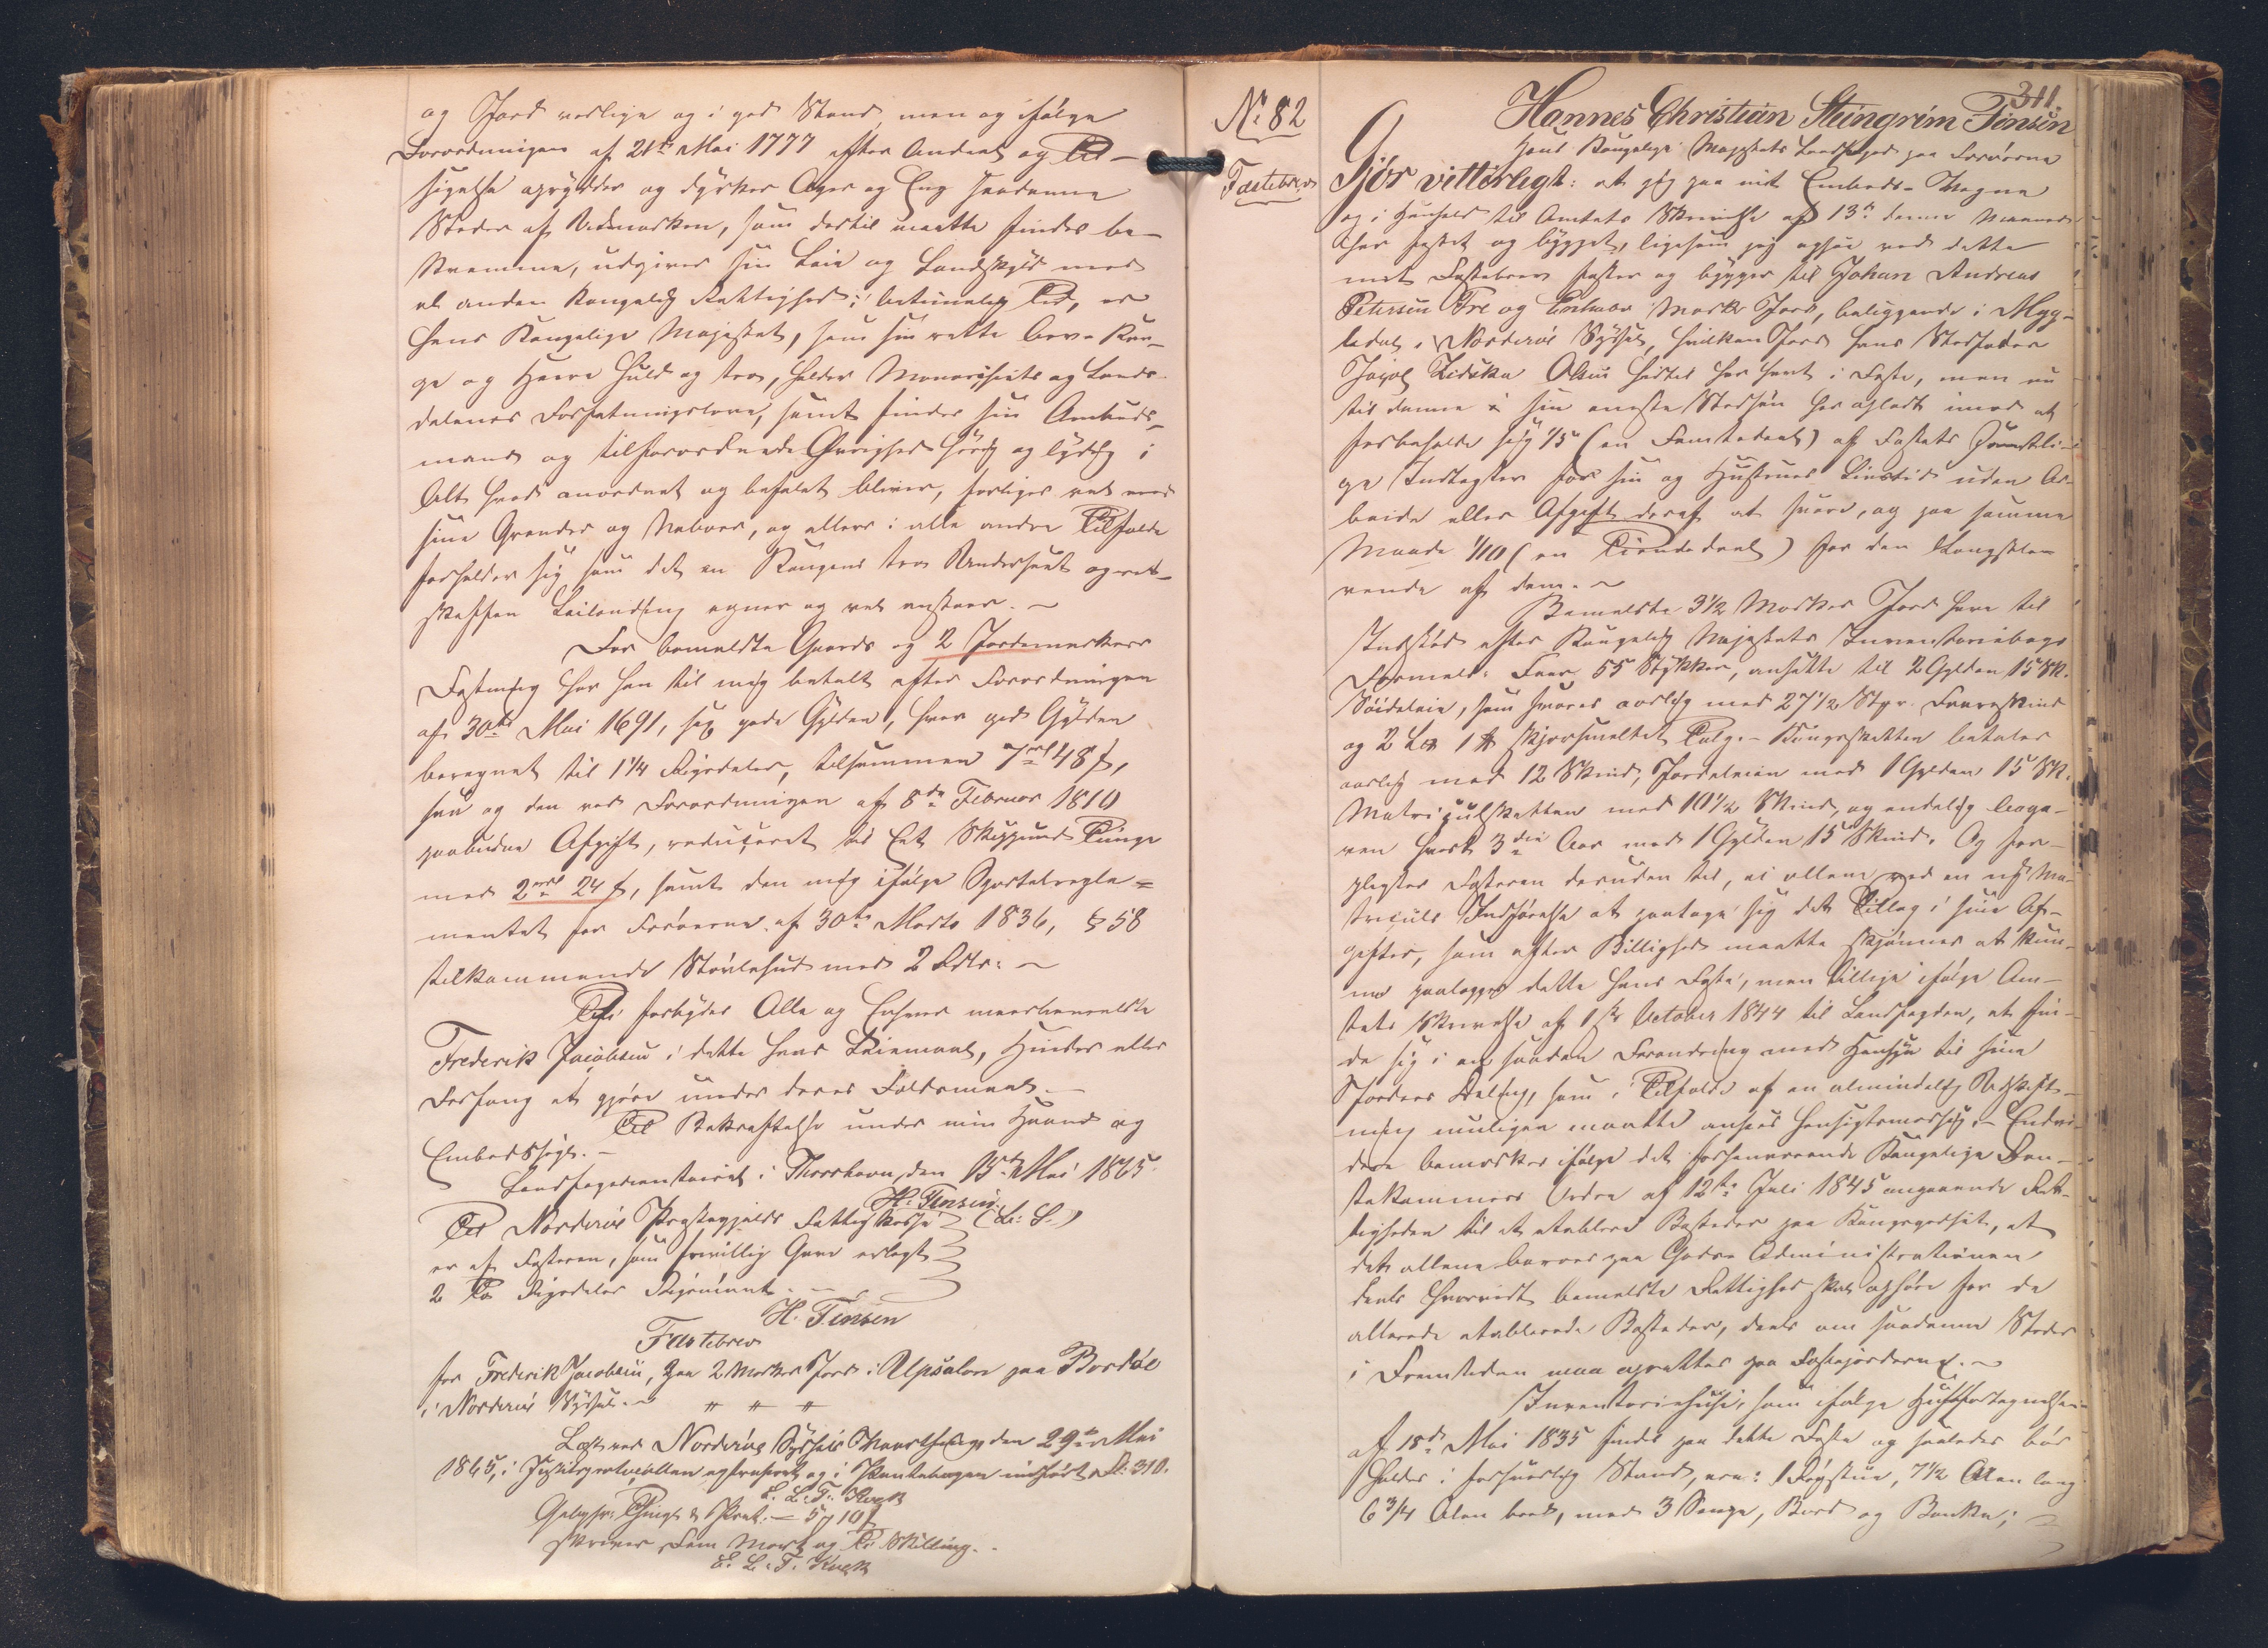 og Jord vedlige og i god Stand, men og ifølge
Forordningen af 21de Mai 1777 efter Andvet og Til-
sigelse oprydder og dyrker Ager og Eng saadanne
Steder af Udmarken, som dertil maatte findes be-
qvemme, udgiver sin Leie og Landskyld med
al anden Kongelig Rettighed i betimelig Tid, er
Hans Kongelige Majestæt, som sin rette Arve Kon-
ge og Herre huld og tro, holder Monarchiets og Lands-
delenes Forfatningslove, samt findes sin Ambuds-
mand og tilforordnede Øvrighed hørig og lydig i
Alt hvad anordnet og befalet bliver, forliges vel med
sine Grander og Naboer, og ellers i alle andre Tilfælde
forholder sig som det en Kongens tro Undersaat og ret-
skaffen Leilending egner og vel anstaaer.
For bemeldte Gaards og 2 Jordemarkers
Fæstning har han til mig betalt efter Forordningen
af 30te Mai 1691, sex gode Gylden, hver god Gylden
beregnet til 1 1/4 Rigsdaler, tilsammen 7rd 48 s,
saa og den ved Forordningen af 8de Februar 1810
paabudne Afgift, reduceret til Eet Skippund Tunge
med 2rd 24 s, samt den mig ifølge Sportelregle=
mentet for Færøerne af 30te Marts 1836, § 58
tilkommende Støvlehud med 2 Rdlr.
Thi forbydes Alle og Enhver meerbemeldte
Frederik Jacobsen i dette hans Leiemaal, Hinder eller
Forfang at gjøre under deres Faldsmaal.
Til Bekræftelse under min Haand og
Embedssegl.
Landfogedcontoiret i Thorshavn, den 15de Mai 1865.
H: Finsen.
(L: S.)
Til Norderøe Præstegjelds Fattigkasse
er af Fæsteren, som frivillig Gave erlagt
2 To Rigsdaler Rigsmønt.
H. Finsen
Fæstebrev
for Frederik Jacobsen, paa 2 Marker Jord i Upsalon paa Bordøe
i Norderøe Syssel.
Læst ved Norderøe Syssels Vaarthing den 29de Mai
1865, i Justitsprotocollen extraheret og i Pantebogen indført Fol: 310.
E. L. T.
Gebyhr: Thingl & Prot. — 5 10 s
skriver Fem Mark og Ti Skilling.
E. L. T.
No 82
Fæstebrev
311.
Hannes Christian Steingrim Finsen
Hans Kongelige Majestæts Landfoged paa Færøerne
Gjør vitterligt: at jeg paa mit Embeds-Vegne
og i Henhold til Amtets Skrivelse af 13de denne Maaned
har fæstet og bygget, ligesom jeg ogsaa ved dette
mit Fæstebrev fæster og bygger til Johan Andreas
Petersen Tre og Enhalv Mark Jord, beliggende i Myg-
ledal i Norderøe Syssel, hvilken Jord hans Stedfader
Olsen hidtil har havt i Fæste, men nu
til denne sin eneste Stedsøn har afladt imod at
forbeholde sig 1/5 (en Femtedeel) af Fæstets samtli-
ge Indtægter for sin og Hustrues Livstid uden Ar-
beide eller Afgift deraf at svare, og paa samme
Maade 1/10 (en Tiendedeel) for den Længstle-
vende af dem.
Bemeldte 3 1/2 Marker Jord have til
Indskud efter Kongelig Majestæts Inventariebogs
Formeld: Faar 55 Stykker, ansatte til 2 Gylden 15 Sk.
Søideleie, som svares aarlig med 27 1/2 Stpr. Faareskind
og 2 Lod 1 ℔ skjørsmeltet Talg. Kongsskatten betales
aarlig med 12 Skind, Jordeleien med 1 Gylden 15 Sk.
Matriculskatten med 10 1/2 Skind, og endelig
hvert 3die Aar med 1 Gylden 15 Skind. Og for-
pligtes Fæsteren desuden til, ei allene ved en ny Ma-
triculs Indførelse at paatage sig det Tillæg i sine Af-
gifter, som efter Billighed maatte skjønnes at kun-
ne paalægges dette hans Fæste, men tillige ifølge Am-
tets Skrivelse af 1ste October 1844 til Landfogden, at fin-
de sig i en saadan Forandring med Hensyn til hine
Jorders Deling, som i Tilfælde af en almindelig Udskift-
ning muligen maatte ansees hensigtsmæssig. Endvi-
dere bemærkes ifølge det forhenværende Kongelige Ren-
tekammers Ordre af 12te Juli 1845 angaaende Ret-
tigheden til at etablere Bosteder paa Kongsgodset, at
det allene beroer paa Gods-Administrationen
deels hvorvidt bemeldte Rettighed skal ophøre for de
allerede etablerede Bosteder, deels om saadanne Steder
i Fremtiden maa oprettes paa Fæstejorderne.
Inventariehuse, som ifølge Huusforretningen
af 18de Mai 1835 findes paa dette Fæste og saaledes bør
holdes i forsvarlig Stand, ere: 1 Røgstue, 7 1/2 Alen lang
6 3/4 Alen bred, med 3 Senge, Bord og Bænke;